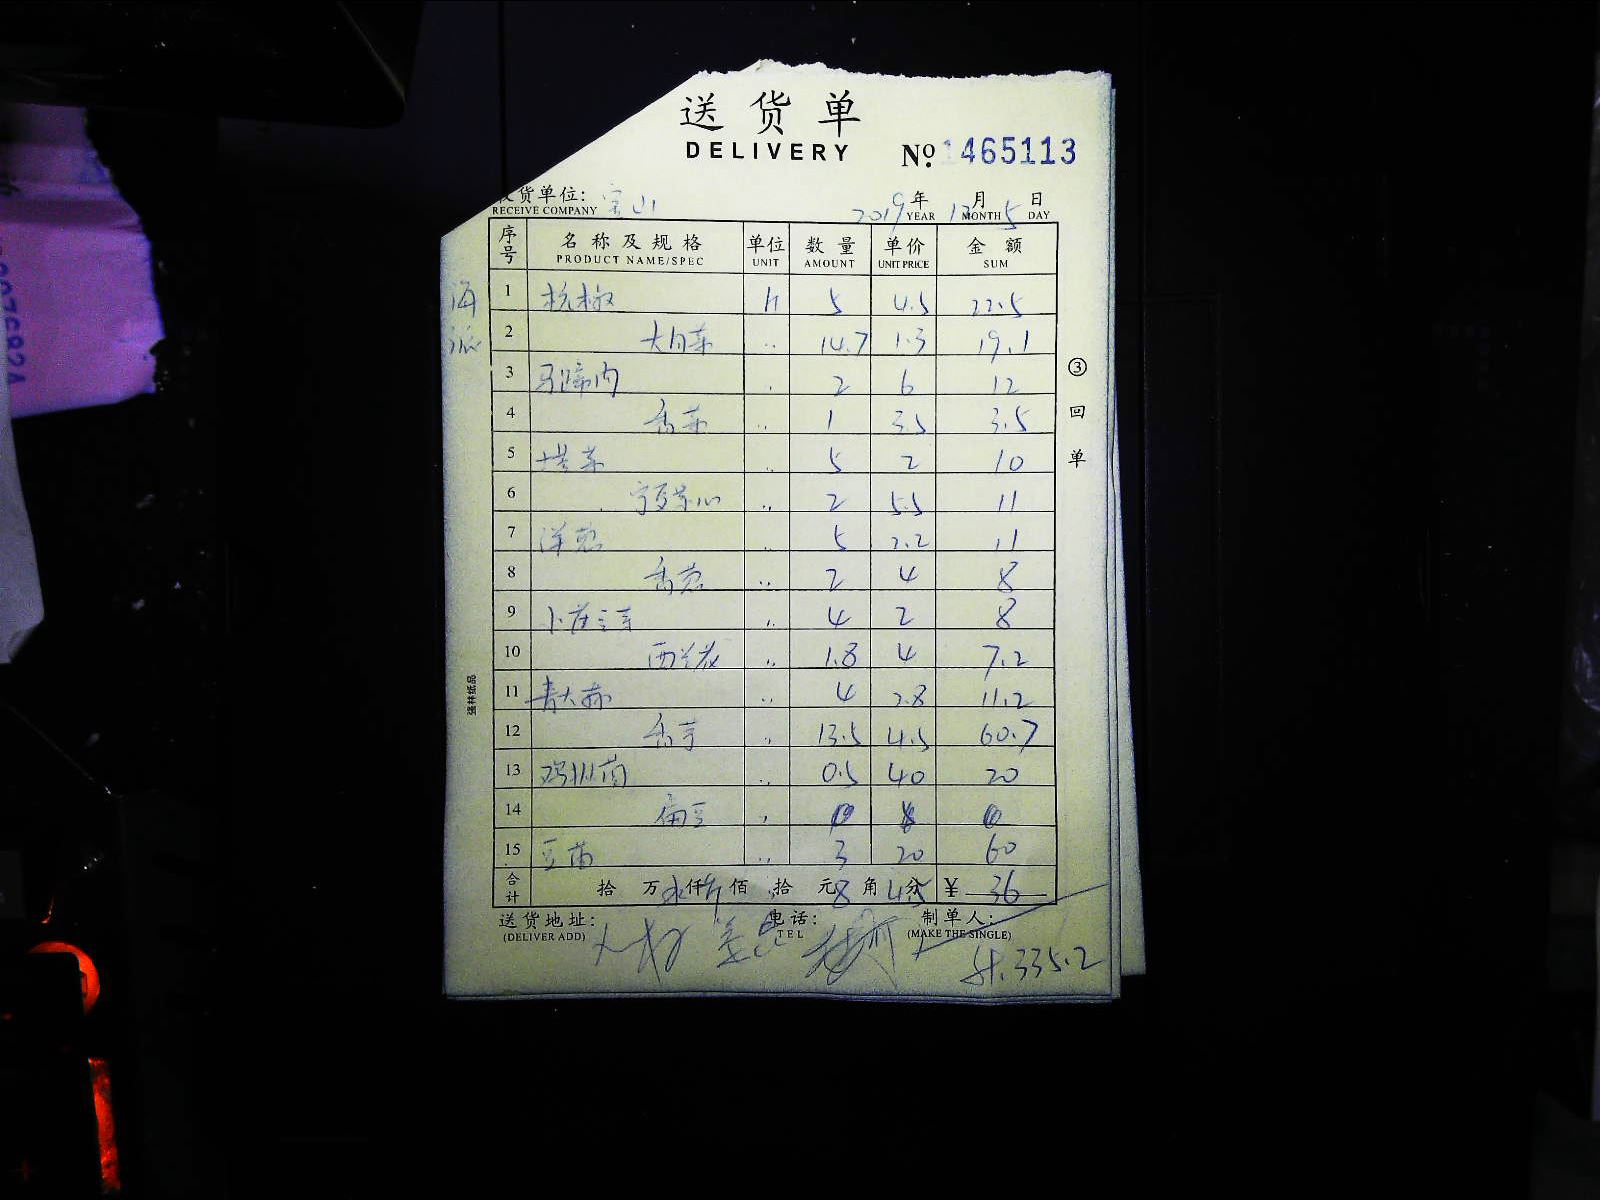 送货单
DELIVERY
№ 1465113
收货单位: 宝山 2019年12月5日
RECEIVE COMPANY YEAR MONTH DAY
序号 名称及规格 单位 数量 单价 金额
PRODUCT NAME/SPEC UNIT AMOUNT UNIT PRICE SUM
海派
1 杭椒 斤 5 4.5 22.5
2 大白菜 〃 14.7 1.3 19.1
3 马蹄肉 〃 2 6 12
4 香菜 〃 1 3.5 3.5
5 塔菜 〃 5 2 10
6 宁夏菜心 〃 2 5.5 11
7 洋葱 〃 5 2.2 11
8 香葱 〃 2 4 8
9 小唐菜 〃 4 2 8
10 西兰花 〃 1.8 4 7.2
11 青大蒜 〃 4 2.8 11.2
12 香芋 〃 13.5 4.5 60.7
13 鸡枞菌 〃 0.5 40 20
14 扁豆 〃
15 豆苗 〃 3 20 60
合计 拾 万 仟 佰 拾 元 8 角 4.5 分 ¥ 36
送货地址: 电话: 制单人:
(DELIVER ADD) TEL (MAKE THE SINGLE)
计.335.2
③回单
强林纸品